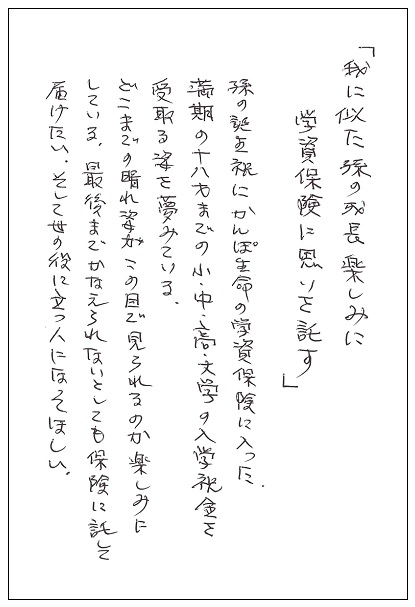 「我に似た孫の成長楽しみに
学資保険に思いを託す」
孫の誕生祝にかんぽ生命の学資保険に入った.
満期の十八才までの小・中・高・大学の入学祝金を
受取る姿を夢みている.
どこまでの晴れ姿がこの目で見られるのか楽しみに
している. 最後までかなえられないとしても保険に託して
届けたい. そして世の役に立つ人になってほしい.